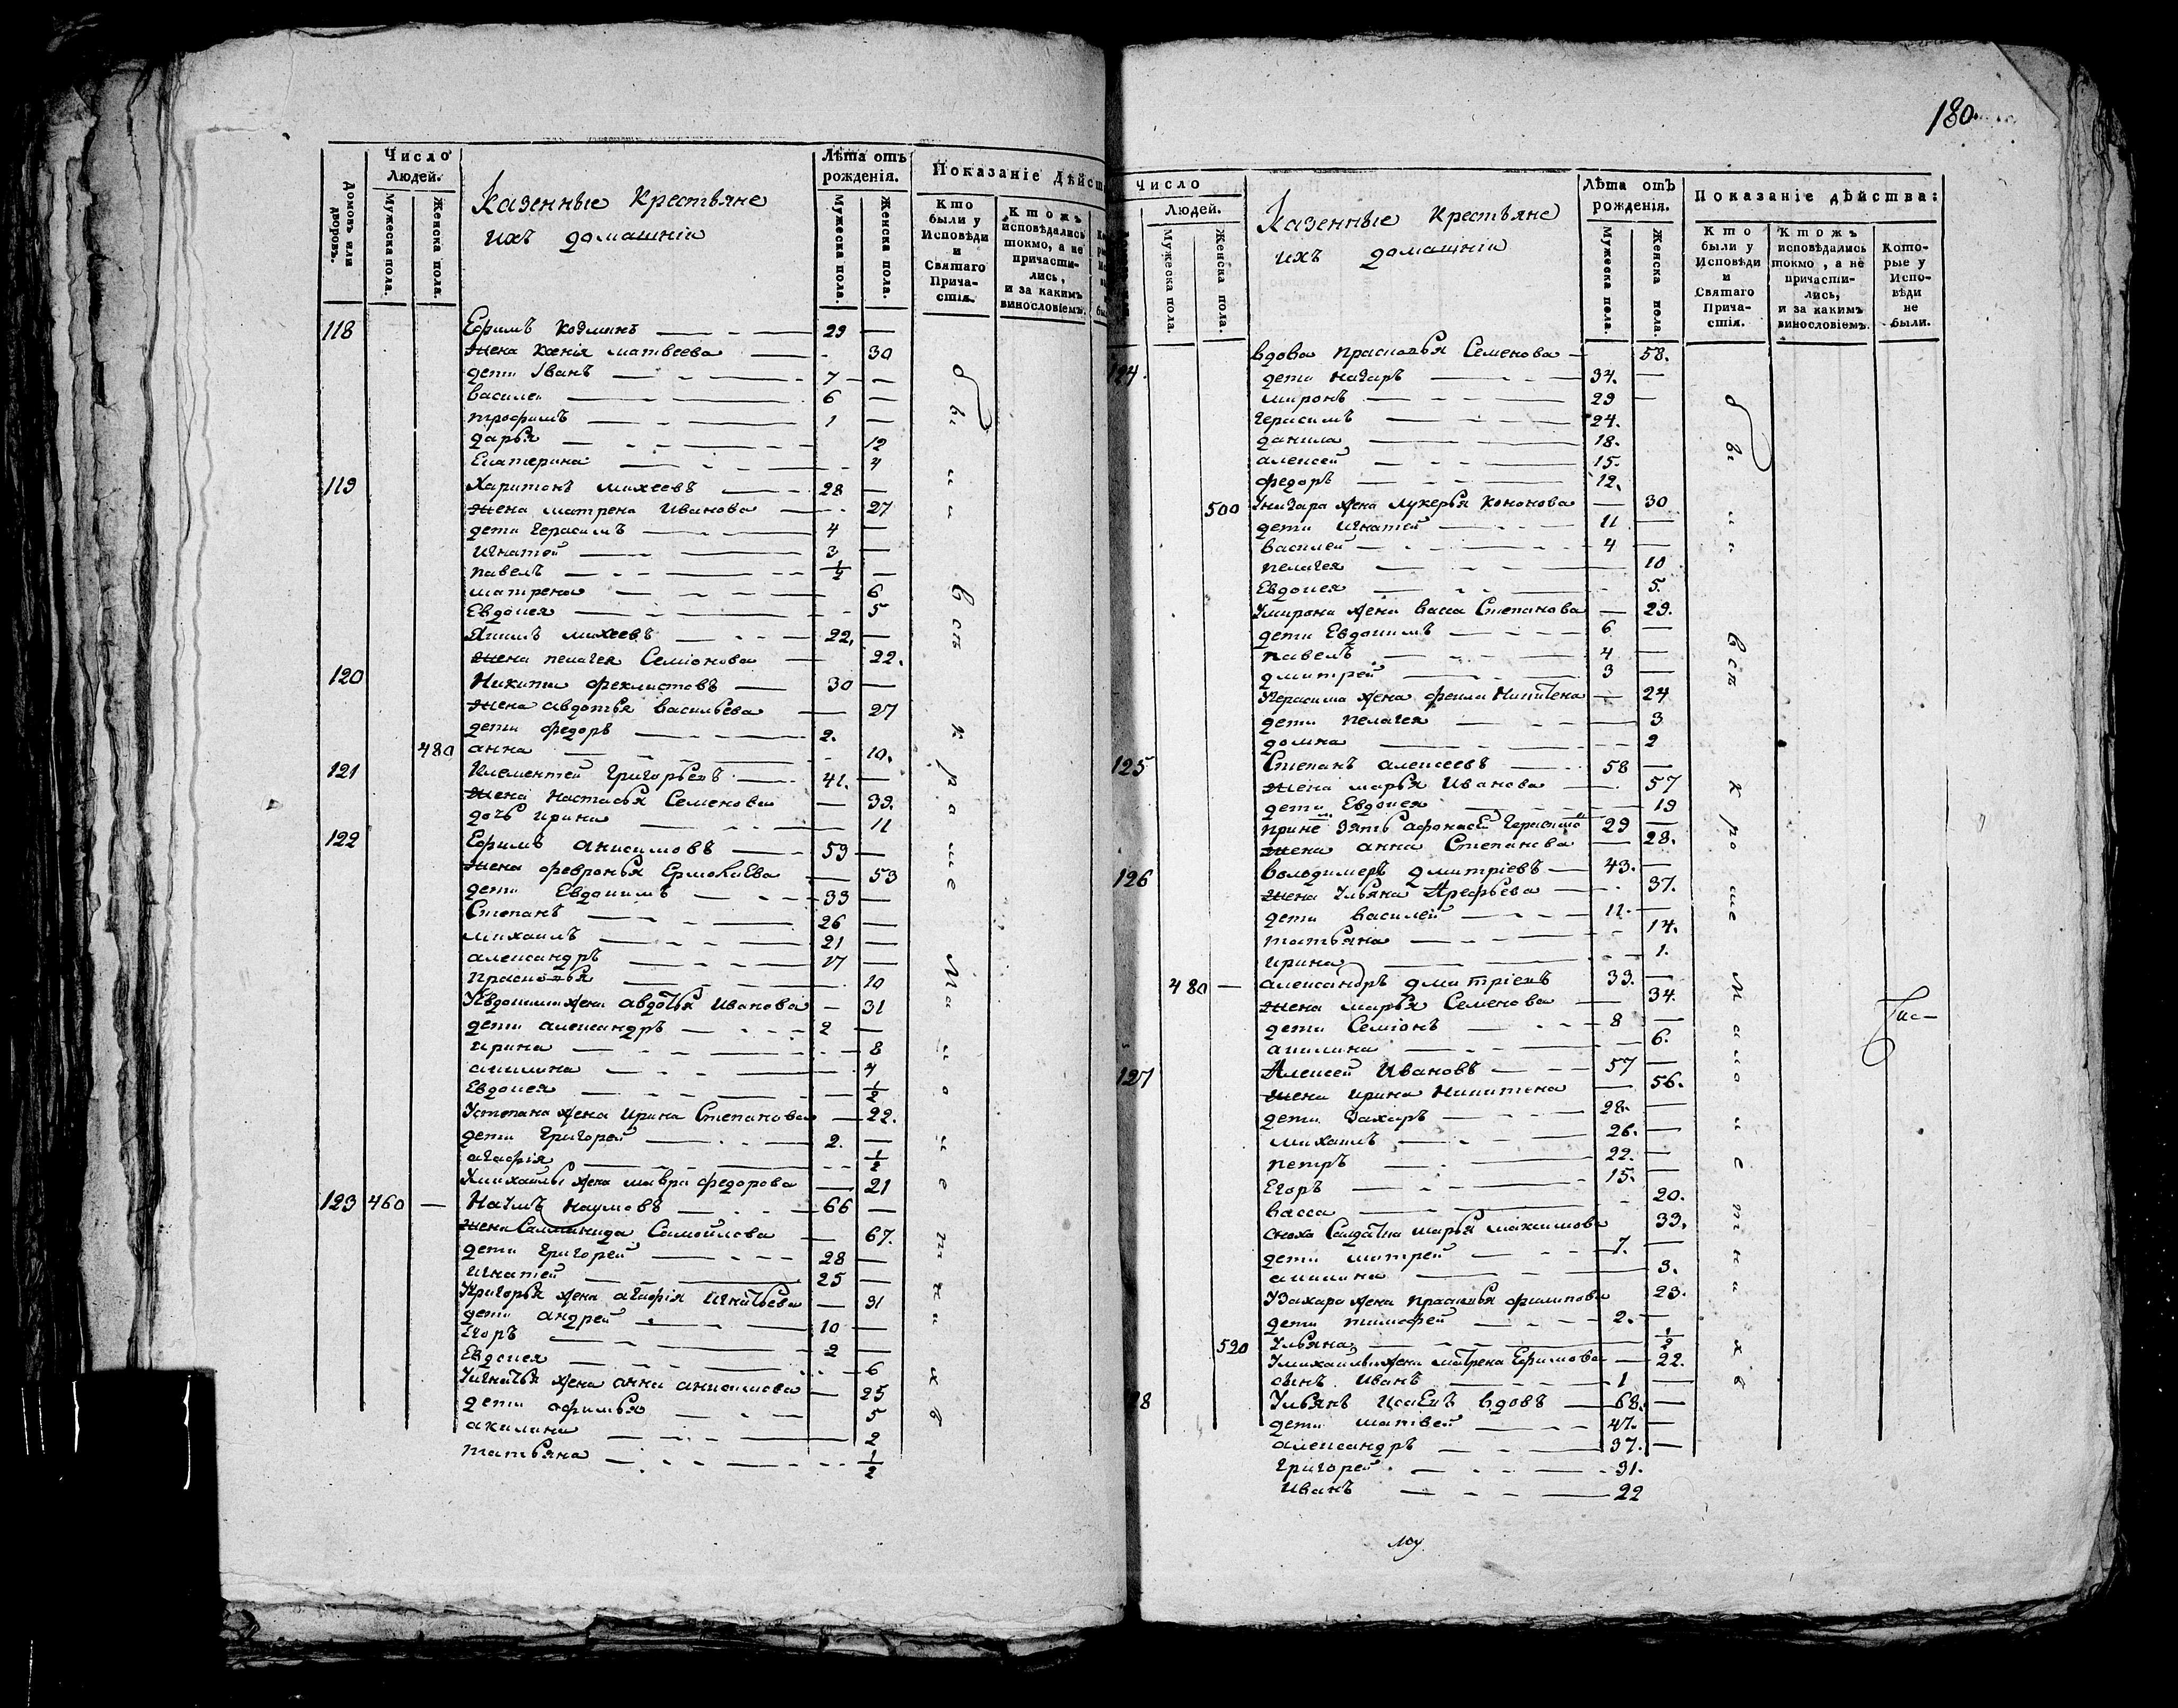 Число Людей.
Лѣта отъ рожденія.
Показаніе Дѣйст
Домовъ или дворовъ.
Мужеска пола.
Женска пола.
Казенные Крестьяне
ихъ домашнiи
Мужеска пола.
Женска пола.
Кто были у Исповѣди и Святаго Причастія.
Ктожъ исповѣдались токмо, а не причастились, и за какимъ винословіемъ.
118 Ефимъ — 29 —
жена Ксенія матвеева — 30
дети Iванъ — 7 —
василеи — 6 —
трофимъ — 1 —
дарья — 12
Екатерина — 4
119 Харитонъ михеевъ — 28 —
жена матрена Иванова — 27
дети Герасимъ — 4 —
Игнатей — 3 —
павелъ — 1/2 —
матрена — 6
Евдокея — 5
Якимъ михеевъ — 22, —
жена пелагея Семіонова — 22.
120 Никита феклистовъ — 30 —
жена авдотья васильева — 27
дети федоръ — 2.
480 анна — 10.
121 Климентей Григорьевъ — 41. —
жена Настасья Семенова — 39.
дочь ирина — 11
122 Ефимъ анисимовъ — 59 —
жена февронья Ермолаева — 53
дети Евдокимъ — 33 —
Степанъ — 26 —
михаилъ — 21 —
александръ — 17 —
прасковья — 10
У Евдокима жена авдотья Иванова — 31
дети александръ — 2 —
ирина — 8
акилина — 4
Евдокея — 1/2
У степана жена Ирина Степанова — 22.
дети Григорей — 2. —
агафія — 1/2
У михаилы жена мавра федорова — 21
123 460 — Наумъ Наумовъ — 66 —
жена Самойлова — 67.
дети Григорей — 28 —
Игнатей — 25 —
У Григорья жена агафія Игнатьева — 31
дети андрей — 10 —
Егоръ — 2 —
Евдокея — 6
У игнатья жена анна анисимова — 25
дети афимья — 5
акилина — 2
татьяна — 1/2
были у исп
въ сп
к р а ш е
180.
Число
Людей.
Лѣта отъ рожденія.
Показаніе дѣйства:
Мужеска пола.
Женска пола.
Казенные Крестьяне
ихъ домашнiи
Мужеска пола.
Женска пола.
Кто были у Исповѣди и Святаго Причастія.
Ктожъ исповѣдались токмо, а не причастились, и за какимъ винословіемъ.
Которые у Исповѣди не были.
вдова прасковья Семенова — 58.
124. дети назаръ — 34. —
миронъ — 29 —
Герасимъ — 24.
данила — 18.
алексей — 15.
федоръ — 12.
500 У назара жена лукерья Кононова — 30
дети Игнатей — 11 —
василей — 4 —
пелагея — 10
Евдокея — 5.
У мирона жена васса Степанова — 29.
дети Евдокимъ — 6 —
павелъ — 4 —
дмитрей — 3 —
У герасима жена фекла Никитена — 24
дети пелагея — 3
домна — 2
125 Степанъ алексеевъ — 58 —
жена марья Иванова — 57
дети Евдокея — 19
при нем зять афонасей Герасимо — 29 —
жена анна Степанова — 28.
126 володимеръ дмитріевъ — 43. —
жена Ульяна Арефьева — 37.
дети василей — 11. —
татьяна — 14.
ирина — 1.
480 — александръ дмитріевъ 33. —
жена марья Семенова — 34.
дети Семіонъ — 8 —
акилина — 6.
127 Алексей Ивановъ — 57 —
жена ирина Никитина — 56.
дети Захаръ — 28. —
михаилъ — 26. —
петръ — 22. —
Егоръ — 15. —
васса — 20.
сноха Солдатка марья максимова 33,
дети митрей — 7. —
акилина — 3.
У Захара жена прасковья филипова 23.
дети тимофей — 2. —
Ульяна — 1/2
520 У михаилы жена матрена Ефимова — 22.
сынъ Иванъ — 1 —
8 Ульянъ Исаевъ вдовъ — 68. —
дети матвей — 47. —
александръ — 37. —
Григорей — 31.
Иванъ — 22